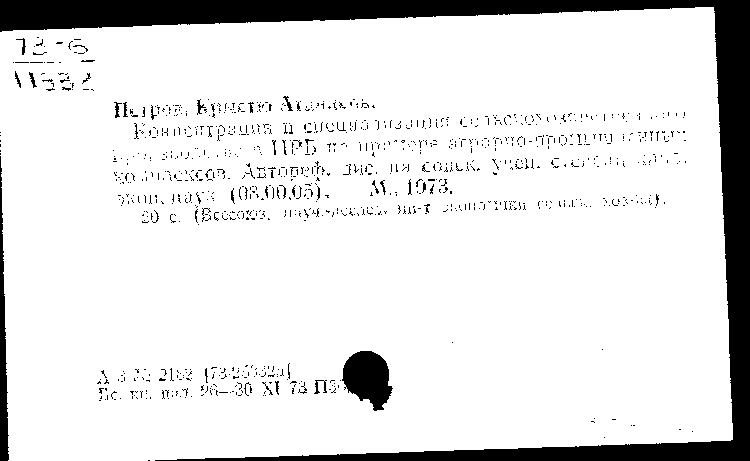 73-6
11332
Петров, Крыстю Атанасов.
Концентрация и специализация сельскохозяйственного
производства в НРБ на примере аграрно-промышленных
комплексов. Автореф. дис. на соиск. учен. степени канд.
экон. наук (08.00.05). М., 1973.
20 с. (Всесоюз. науч.-исслед. ин-т экономики сельск. хоз-ва).
2182
Вс. кн. пал. 26—30 XI 73